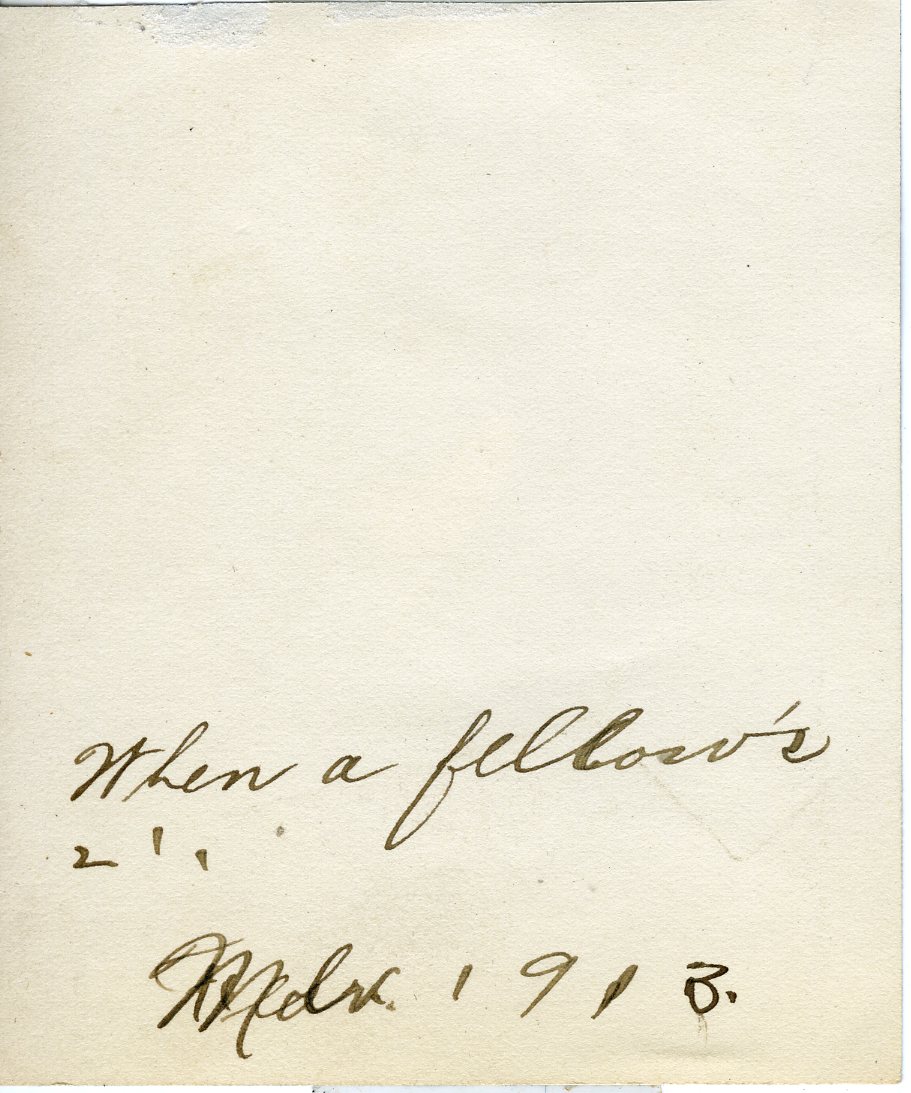 When a fellow's
21.
1913.